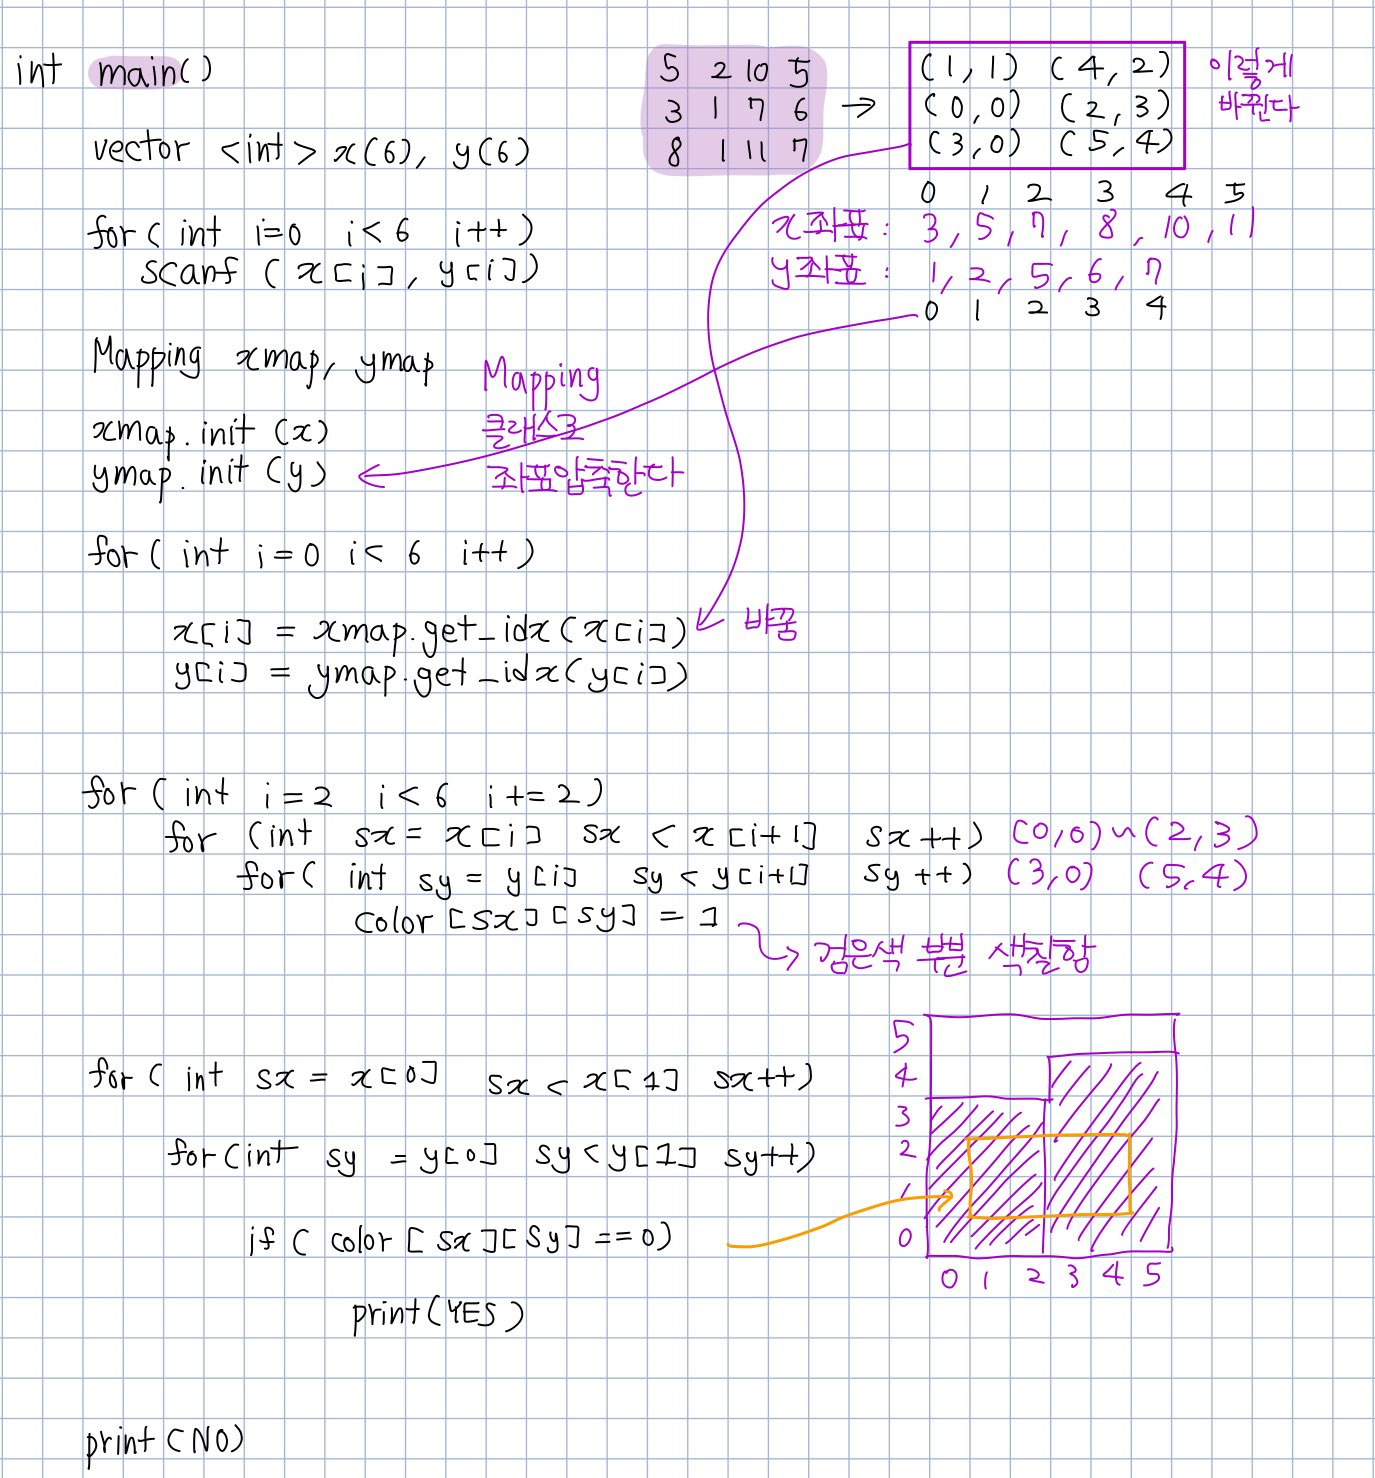 int main()
5 2 10 5
3 1 7 6
8 1 11 7
(1,1) (4,2)
(0,0) (2,3)
(3,0) (5,4)
이렇게
바뀐다
vector <int> x(6), y(6)
0 1 2 3 4 5
x좌표 : 3, 5, 7, 8, 10, 11
y좌표 : 1, 2, 5, 6, 7
0 1 2 3 4
for( int i=0 i<6 i++)
scanf ( x[i], y[i])
Mapping xmap, ymap
Mapping
클래스로
좌표압축한다
xmap.init (x)
ymap.init (y)
for( int i=0 i< 6 i++)
x[i] = xmap.get_idx(x[i])
y[i] = ymap.get_idx(y[i])
바꿈
for ( int i=2 i<6 i+=2)
for (int sx= x[i] sx < x[i+1] sx++) (0,0)~(2,3)
for( int sy= y[i] sy<y[i+1] sy++) (3,0) (5,4)
color [sx][sy] = 1
검은색 부분 색칠함
for ( int sx = x[0] sx < x[1] sx++)
for(int sy =y[0] sy<y[1] sy++)
if ( color [ sx][sy] ==0)
print(YES)
5
4
3
2
1
0
0 1 2 3 4 5
print(NO)